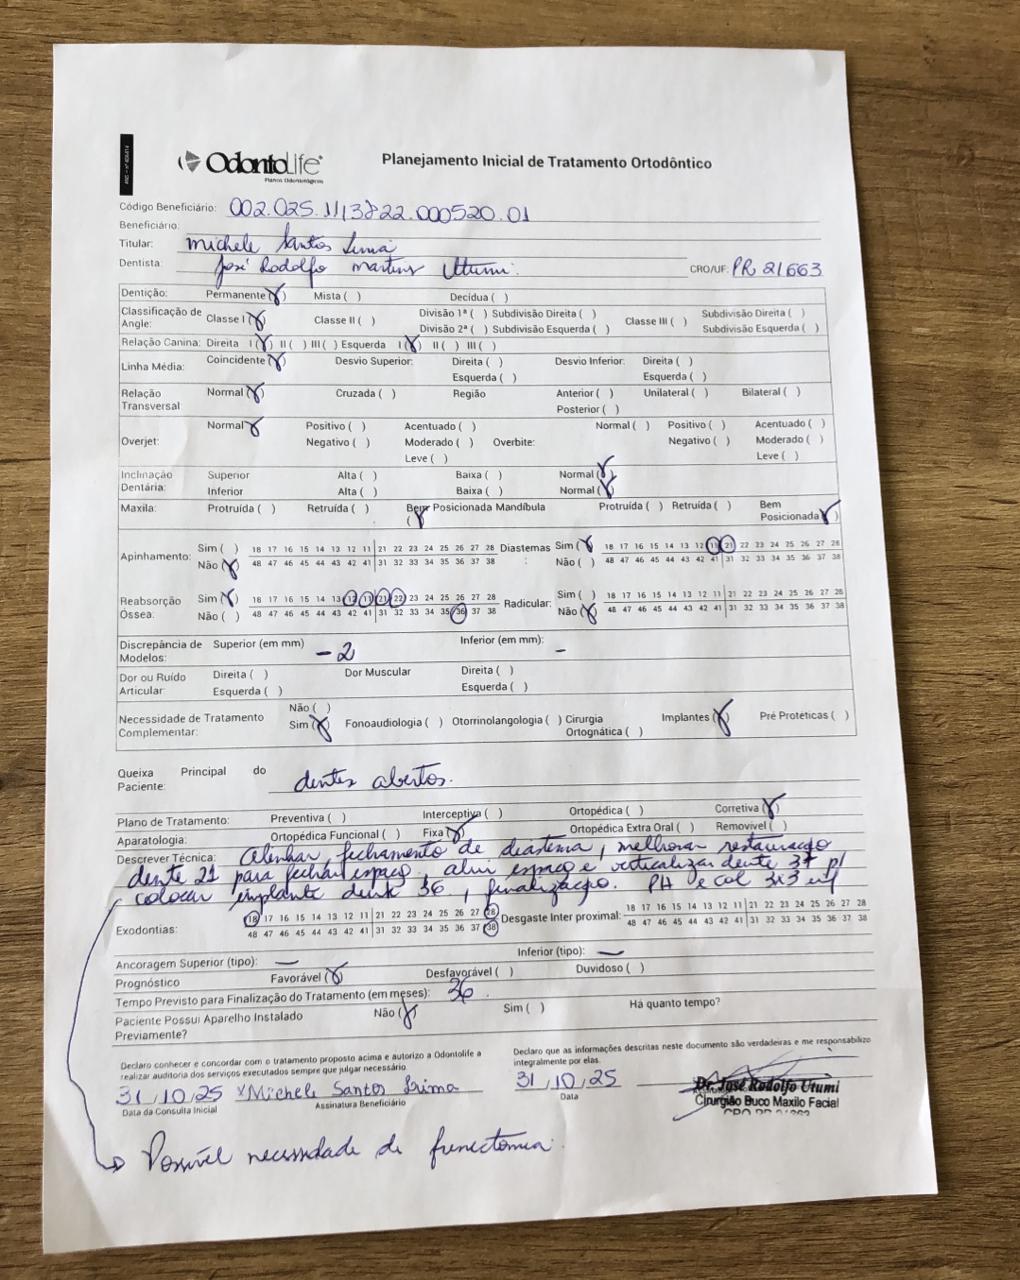 OdontoLife
Planos Odontológicos
Planejamento Inicial de Tratamento Ortodôntico
Código Beneficiário: 002.025.113822.000520.01
Beneficiário:
Titular: Michele Santos Lima
Dentista: José Rodolfo Martins Utumi. CRO/UF: PR 21663
Dentição: Permanente (X) Mista ( ) Decídua ( )
Classificação de Angle: Classe I (X) Classe II ( ) Divisão 1ª ( ) Subdivisão Direita ( ) Classe III ( ) Subdivisão Direita ( )
Divisão 2ª ( ) Subdivisão Esquerda ( ) Subdivisão Esquerda ( )
Relação Canina: Direita I (X) II ( ) III ( ) Esquerda I (X) II ( ) III ( )
Linha Média: Coincidente (X) Desvio Superior: Direita ( ) Desvio Inferior: Direita ( )
Esquerda ( ) Esquerda ( )
Relação Transversal Normal (X) Cruzada ( ) Região Anterior ( ) Unilateral ( ) Bilateral ( )
Posterior ( )
Normal (X) Positivo ( ) Acentuado ( ) Normal ( ) Positivo ( ) Acentuado ( )
Overjet: Negativo ( ) Moderado ( ) Overbite: Negativo ( ) Moderado ( )
Leve ( ) Leve ( )
Inclinação Dentária: Superior Alta ( ) Baixa ( ) Normal (X)
Inferior Alta ( ) Baixa ( ) Normal (X)
Maxila: Protruída ( ) Retruída ( ) Bem Posicionada (X) Mandíbula Protruída ( ) Retruída ( ) Bem Posicionada (X)
Apinhamento: Sim ( ) 18 17 16 15 14 13 12 11 21 22 23 24 25 26 27 28 Diastemas: Sim (X) 18 17 16 15 14 13 12 11 21 22 23 24 25 26 27 28
Não (X) 48 47 46 45 44 43 42 41 31 32 33 34 35 36 37 38 Não ( ) 48 47 46 45 44 43 42 41 31 32 33 34 35 36 37 38
Reabsorção Óssea: Sim (X) 18 17 16 15 14 13 12 11 21 22 23 24 25 26 27 28 Radicular: Sim ( ) 18 17 16 15 14 13 12 11 21 22 23 24 25 26 27 28
Não ( ) 48 47 46 45 44 43 42 41 31 32 33 34 35 36 37 38 Não (X) 48 47 46 45 44 43 42 41 31 32 33 34 35 36 37 38
Discrepância de Modelos: Superior (em mm) -2 Inferior (em mm): -
Dor ou Ruído Articular Direita ( ) Dor Muscular Direita ( )
Esquerda ( ) Esquerda ( )
Necessidade de Tratamento Complementar: Não ( )
Sim (X) Fonoaudiologia ( ) Otorrinolangologia ( ) Cirurgia Ortognática ( ) Implantes (X) Pré Protéticas ( )
Queixa Principal do Paciente: dentes abertos.
Plano de Tratamento: Preventiva ( ) Interceptiva ( ) Ortopédica ( ) Corretiva (X)
Aparatologia: Ortopédica Funcional ( ) Fixa (X) Ortopédica Extra Oral ( ) Removível ( )
Descrever Técnica: Alinhar, fechamento de diastema, melhorar restauração
dente 21 para fechar espaço, abrir espaço e verticalizar dente 37 p/
colocar implante dente 36, finalização. PH e col 3x3 inf
Exodontias: 18 17 16 15 14 13 12 11 21 22 23 24 25 26 27 28 Desgaste Inter proximal: 18 17 16 15 14 13 12 11 21 22 23 24 25 26 27 28
48 47 46 45 44 43 42 41 31 32 33 34 35 36 37 38 48 47 46 45 44 43 42 41 31 32 33 34 35 36 37 38
Ancoragem Superior (tipo): — Inferior (tipo): —
Prognóstico Favorável (X) Desfavorável ( ) Duvidoso ( )
Tempo Previsto para Finalização do Tratamento (em meses): 36.
Paciente Possui Aparelho Instalado Previamente? Não (X) Sim ( ) Há quanto tempo?
Declaro conhecer e concordar com o tratamento proposto acima e autorizo a Odontolife a
realizar auditoria dos serviços executados sempre que julgar necessário.
Declaro que as informações descritas neste documento são verdadeiras e me responsabilizo
integralmente por elas.
31, 10, 25 x Michele Santos Lima 31, 10, 25
Data da Consulta Inicial Assinatura Beneficiário Data
Dr. José Rodolfo Utumi
Cirurgião Buco Maxilo Facial
Possível necessidade de frenectomia.